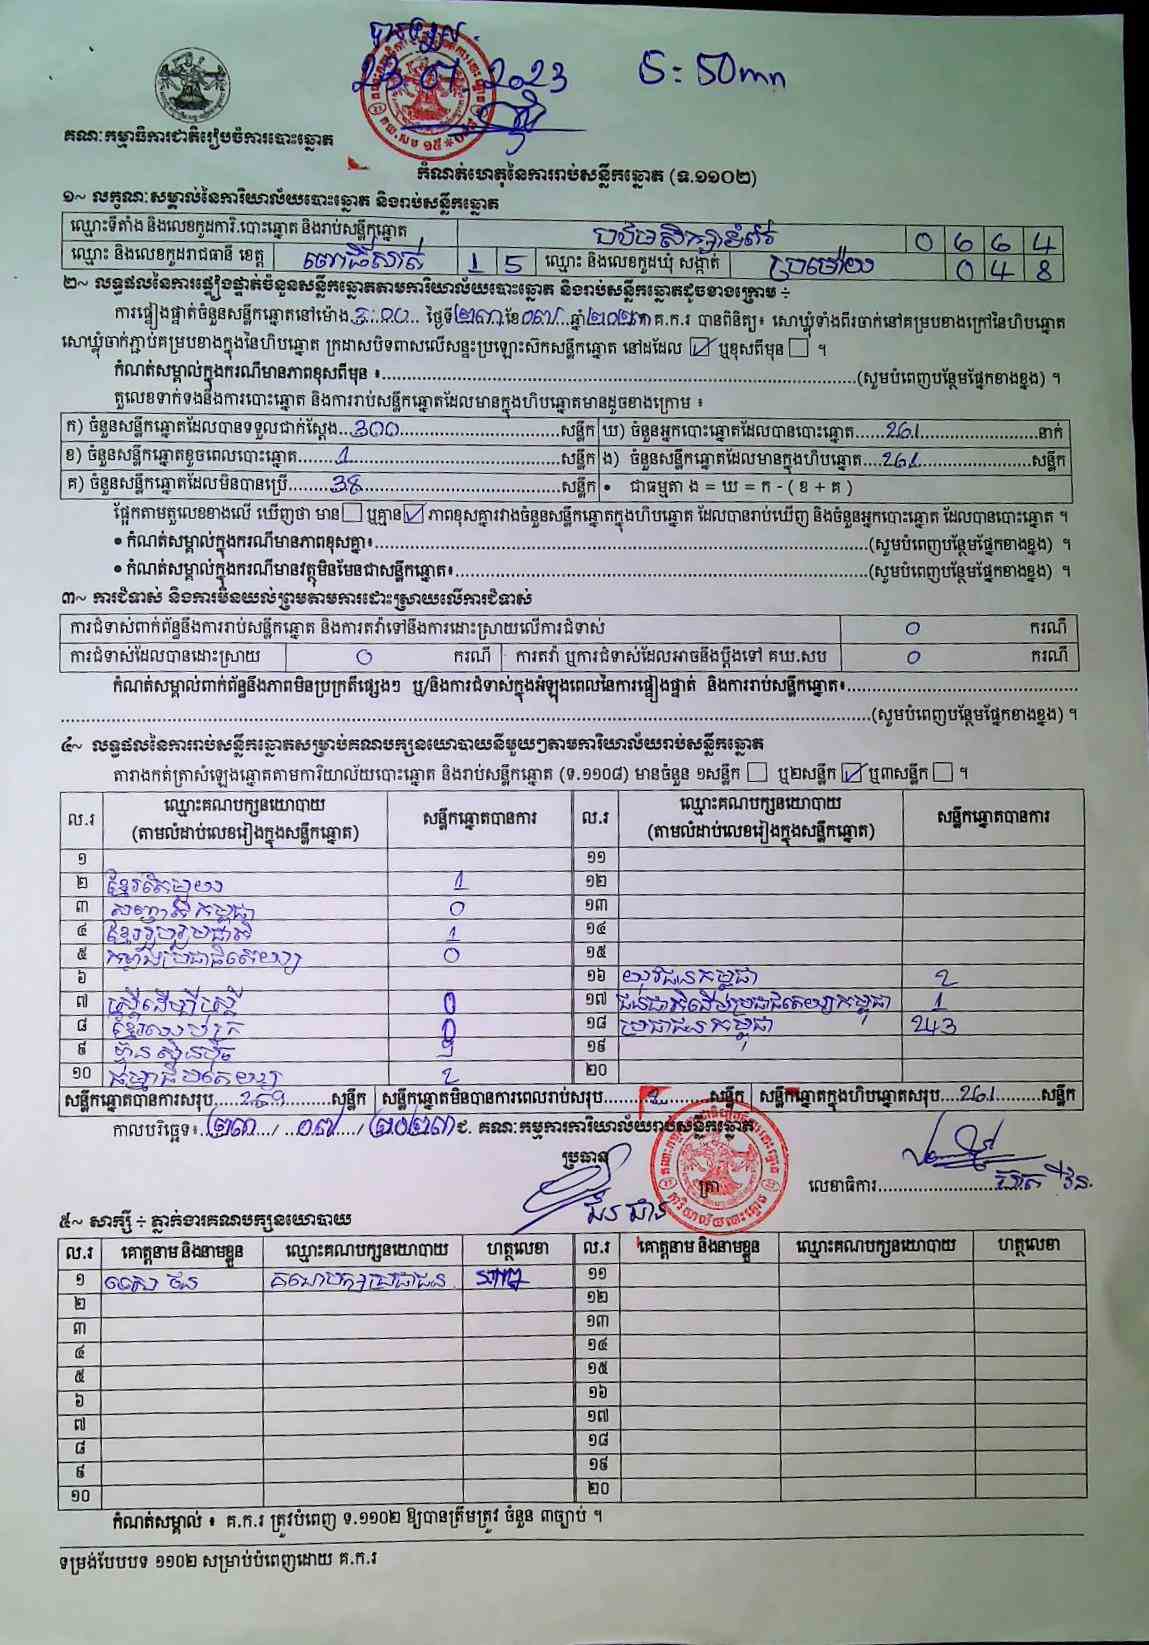 បានឃើញ
23.07.2023 5:50mn
គណៈកម្មាធិការជាតិរៀបចំការបោះឆ្នោត
កំណត់ហេតុនៃការរាប់សន្លឹកឆ្នោត (ទ.១១០២)
១~ លក្ខណៈសម្គាល់នៃការិយាល័យបោះឆ្នោត និងរាប់សន្លឹកឆ្នោត
ឈ្មោះទីតាំង និងលេខកូដការិ.បោះឆ្នោត និងរាប់សន្លឹកឆ្នោត 0 6 6 4
ឈ្មោះ និងលេខកូដរាជធានី ខេត្ត ពោធិ៍សាត់ 1 5 ឈ្មោះ និងលេខកូដឃុំ សង្កាត់ ប្រម៉ោយ 0 4 8
២~ លទ្ធផលនៃការផ្ទៀងផ្ទាត់ចំនួនសន្លឹកឆ្នោតតាមការិយាល័យបោះឆ្នោត និងរាប់សន្លឹកឆ្នោតដូចខាងក្រោម ÷
ការផ្ទៀងផ្ទាត់ចំនួនសន្លឹកឆ្នោតនៅម៉ោង 3:00 ថ្ងៃទី២៣ ខែ០៧ ឆ្នាំ២០២៣ គ.ក.រ បានពិនិត្យ៖ សោឃ្លុំទាំងពីរចាក់នៅគម្របខាងក្រៅនៃហិបឆ្នោត
សោឃ្លុំចាក់ភ្ជាប់គម្របខាងក្នុងនៃហិបឆ្នោត ក្រដាសបិទពាសលើសន្ទះប្រឡោះស៊កសន្លឹកឆ្នោត នៅដដែល ☑ ឬខុសពីមុន ☐ ។
កំណត់សម្គាល់ក្នុងករណីមានភាពខុសពីមុន ៖..........(សូមបំពេញបន្ថែមផ្នែកខាងខ្នង) ។
តួលេខទាក់ទងនឹងការបោះឆ្នោត និងការរាប់សន្លឹកឆ្នោតដែលមានក្នុងហិបឆ្នោតមានដូចខាងក្រោម ៖
ក) ចំនួនសន្លឹកឆ្នោតដែលបានទទួលជាក់ស្តែង...300...សន្លឹក ឃ) ចំនួនអ្នកបោះឆ្នោតដែលបានបោះឆ្នោត...261...នាក់
ខ) ចំនួនសន្លឹកឆ្នោតខូចពេលបោះឆ្នោត...1...សន្លឹក ង) ចំនួនសន្លឹកឆ្នោតដែលមានក្នុងហិបឆ្នោត...261...សន្លឹក
គ) ចំនួនសន្លឹកឆ្នោតដែលមិនបានប្រើ...38...សន្លឹក • ជាធម្មតា ង = ឃ = ក - ( ខ + គ )
ផ្អែកតាមតួលេខខាងលើ ឃើញថា មាន ☐ ឬគ្មាន ☑ ភាពខុសគ្នារវាងចំនួនសន្លឹកឆ្នោតក្នុងហិបឆ្នោត ដែលបានរាប់ឃើញ និងចំនួនអ្នកបោះឆ្នោត ដែលបានបោះឆ្នោត ។
• កំណត់សម្គាល់ក្នុងករណីមានភាពខុសគ្នា៖..........(សូមបំពេញបន្ថែមផ្នែកខាងខ្នង) ។
• កំណត់សម្គាល់ក្នុងករណីមានវត្ថុមិនមែនជាសន្លឹកឆ្នោត៖..........(សូមបំពេញបន្ថែមផ្នែកខាងខ្នង) ។
៣~ ការជំទាស់ និងការមិនយល់ព្រមតាមការដោះស្រាយលើការជំទាស់
ការជំទាស់ពាក់ព័ន្ធនឹងការរាប់សន្លឹកឆ្នោត និងការតវ៉ាទៅនឹងការដោះស្រាយលើការជំទាស់ 0 ករណី
ការជំទាស់ដែលបានដោះស្រាយ 0 ករណី ការតវ៉ា ឬការជំទាស់ដែលអាចនឹងប្តឹងទៅ គឃ.សប 0 ករណី
កំណត់សម្គាល់ពាក់ព័ន្ធនឹងភាពមិនប្រក្រតីផ្សេងៗ ឬ/និងការជំទាស់ក្នុងអំឡុងពេលនៃការផ្ទៀងផ្ទាត់ និងការរាប់សន្លឹកឆ្នោត៖..........
..........(សូមបំពេញបន្ថែមផ្នែកខាងខ្នង) ។
៤~ លទ្ធផលនៃការរាប់សន្លឹកឆ្នោតសម្រាប់គណបក្សនយោបាយនីមួយៗតាមការិយាល័យរាប់សន្លឹកឆ្នោត
តារាងកត់ត្រាសំឡេងឆ្នោតតាមការិយាល័យបោះឆ្នោត និងរាប់សន្លឹកឆ្នោត (ទ.១១០៨) មានចំនួន ១សន្លឹក ☐ ឬ២សន្លឹក ☑ ឬ៣សន្លឹក ☐ ។
ល.រ ឈ្មោះគណបក្សនយោបាយ (តាមលំដាប់លេខរៀងក្នុងសន្លឹកឆ្នោត) សន្លឹកឆ្នោតបានការ ល.រ ឈ្មោះគណបក្សនយោបាយ (តាមលំដាប់លេខរៀងក្នុងសន្លឹកឆ្នោត) សន្លឹកឆ្នោតបានការ
១ ១១
២ ខ្មែរតែមួយ 1 ១២
៣ សញ្ជាតិកម្ពុជា 0 ១៣
៤ ខ្មែររួបរួមជាតិ 1 ១៤
៥ កម្លាំងប្រជាធិបតេយ្យ 0 ១៥
៦ ១៦ យុវជនកម្ពុជា 2
៧ ស្រ្តីដើម្បីស្រ្តី 0 ១៧ ជនជាតិដើមប្រជាធិបតេយ្យកម្ពុជា 1
៨ ខ្មែរឈប់ក្រ 0 ១៨ ប្រជាជនកម្ពុជា 243
៩ ហ្វ៊ុនស៊ិនប៉ិច 9 ១៩
១០ ធម្មាធិបតេយ្យ 2 ២០
សន្លឹកឆ្នោតបានការសរុប...259...សន្លឹក សន្លឹកឆ្នោតមិនបានការពេលរាប់សរុប...2...សន្លឹក សន្លឹកឆ្នោតក្នុងហិបឆ្នោតសរុប...261...សន្លឹក
កាលបរិច្ឆេទ៖ ២៣ / ០៧ / ២០២៣ ជ. គណៈកម្មការការិយាល័យរាប់សន្លឹកឆ្នោត
ប្រធាន ត្រា លេខាធិការ..........
៥~ សាក្សី ÷ ភ្នាក់ងារគណបក្សនយោបាយ
ល.រ គោត្តនាម និងនាមខ្លួន ឈ្មោះគណបក្សនយោបាយ ហត្ថលេខា ល.រ គោត្តនាម និងនាមខ្លួន ឈ្មោះគណបក្សនយោបាយ ហត្ថលេខា
១ គណបក្សប្រជាជន ១១
២ ១២
៣ ១៣
៤ ១៤
៥ ១៥
៦ ១៦
៧ ១៧
៨ ១៨
៩ ១៩
១០ ២០
កំណត់សម្គាល់ ៖ គ.ក.រ ត្រូវបំពេញ ទ.១១០២ ឱ្យបានត្រឹមត្រូវ ចំនួន ៣ច្បាប់ ។
ទម្រង់បែបបទ ១១០២ សម្រាប់បំពេញដោយ គ.ក.រ